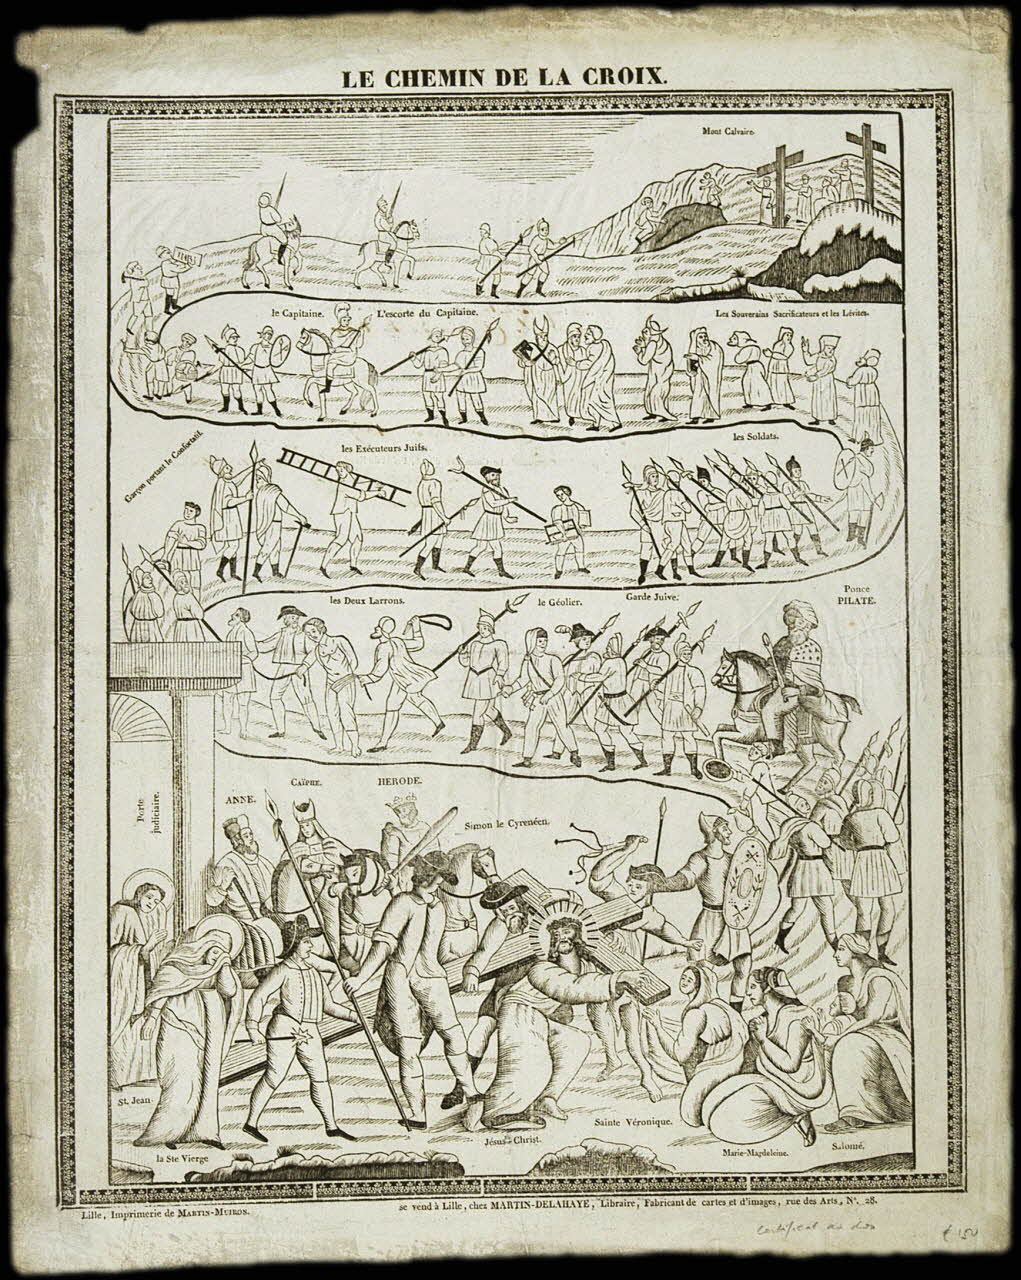 LE CHEMIN DE LA CROIX.
Mont Calvaire.
le Capitaine.
L'escorte du Capitaine.
Les Souverains Sacrificateurs et les Lévites.
Garçon portant le Confortatif.
les Exécuteurs Juifs.
les Soldats.
les Deux Larrons.
le Géolier.
Garde Juive.
Ponce
PILATE.
Porte
judiciaire.
ANNE.
CAÏPHE.
HERODE.
Simon le Cyrenéen.
St. Jean.
la Ste Vierge
Jésus-Christ.
Sainte Véronique.
Marie-Magdeleine.
Salomé.
Lille, Imprimerie de MARTIN-MUIRON.
se vend à Lille, chez MARTIN-DELAHAYE, Libraire, Fabricant de cartes et d'images, rue des Arts, N°. 28.
certificat au dos
€ 150